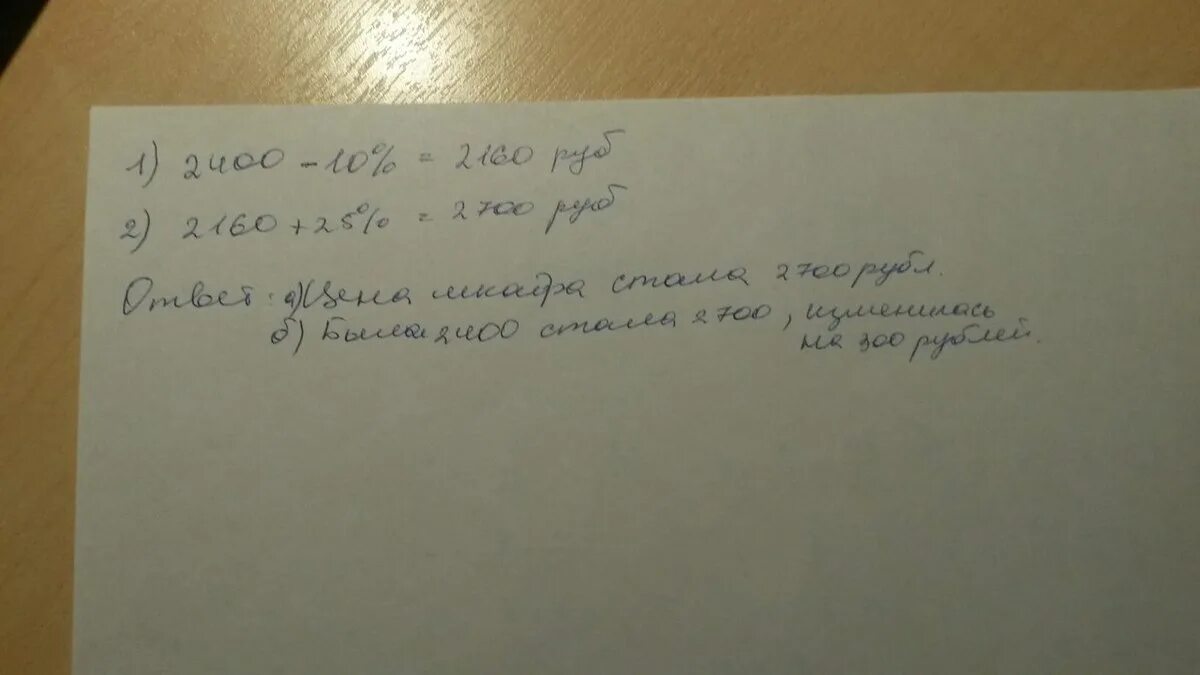 1) 2400 - 10% = 2160 руб
2) 2160 + 25% = 2700 руб
Ответ: а) Цена шкафа стала 2700 рубл.
б) Была 2400 стала 2700, изменилась
на 300 рублей.